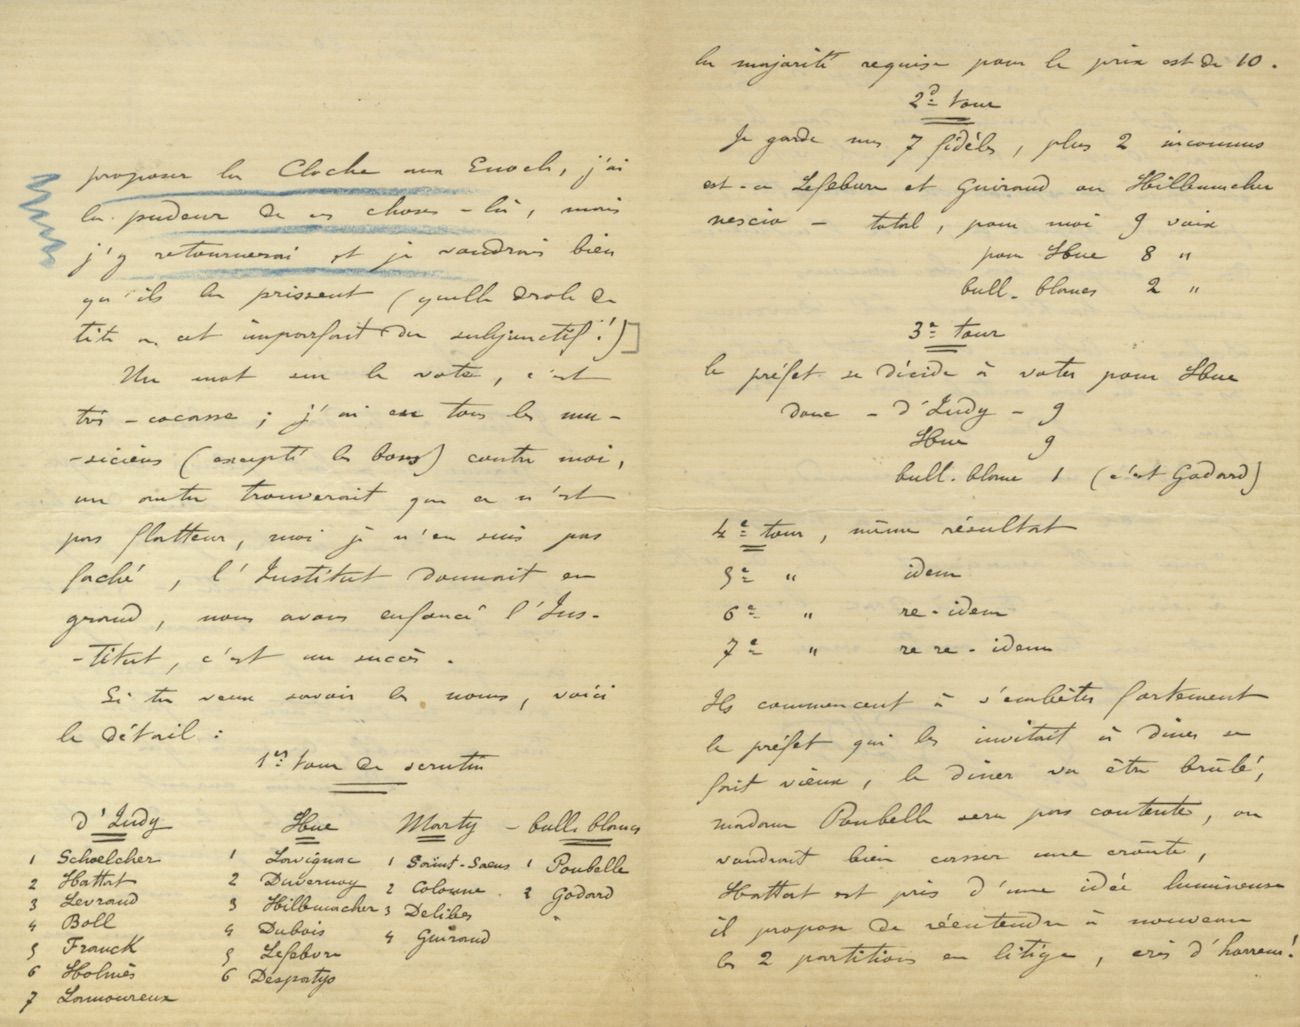 proposer la Cloche aux Enoch, j'ai
la pudeur de ces choses-là, mais
j'y retournerai et je voudrais bien
qu'ils la prissent (quelle drole de
tête a cet imparfait du subjonctif!)]
Un mot sur le vote, c'est
très-cocasse ; j'ai eu tous les mu-
-siciens (excepté les bons) contre moi,
un autre trouverait que ce n'est
pas flatteur, moi je n'en suis pas
faché, l'Institut donnait en
grand, nous avons enfoncé l'Ins-
-titut, c'est un succès.
Si tu veux savoir les noms, voici
le détail :
1er tour de scrutin
d'Indy Hue Marty - bull. blancs
1 Schoelcher 1 Lavignac 1 Saint-Saens 1 Poubelle
2 Hattat 2 Duvernoy 2 Colonne 2 Godard
3 Levraud 3 Hillemacher 3 Delibes
4 Boll 4 Dubois 4 Guiraud
5 Franck 5 Lefebvre
6 Holmès 6 Despatys
7 Lamoureux
la majorité requise pour le prix est de 10.
2d tour
Je garde mes 7 fidèles, plus 2 inconnus
est-ce Lefebvre et Guiraud ou Hillemacher
nescio - total, pour moi 9 voix
pour Hue 8 "
bull. blancs 2 "
3e tour
le préfet se décide à voter pour Hue
donc - d'Indy - 9
Hue 9
bull. blanc 1 (c'est Godard)
4e tour, même résultat
5e " idem
6e " re-idem
7e " re re-idem
Ils commencent à s'embêter fortement
le préfet qui les invitait à diner se
fait vieux, le diner va être brûlé,
madame Poubelle sera pas contente, on
voudrait bien casser une croûte,
Hattat est pris d'une idée lumineuse
il propose de réentendre à nouveau
les 2 partitions en litige, cris d'horreur!